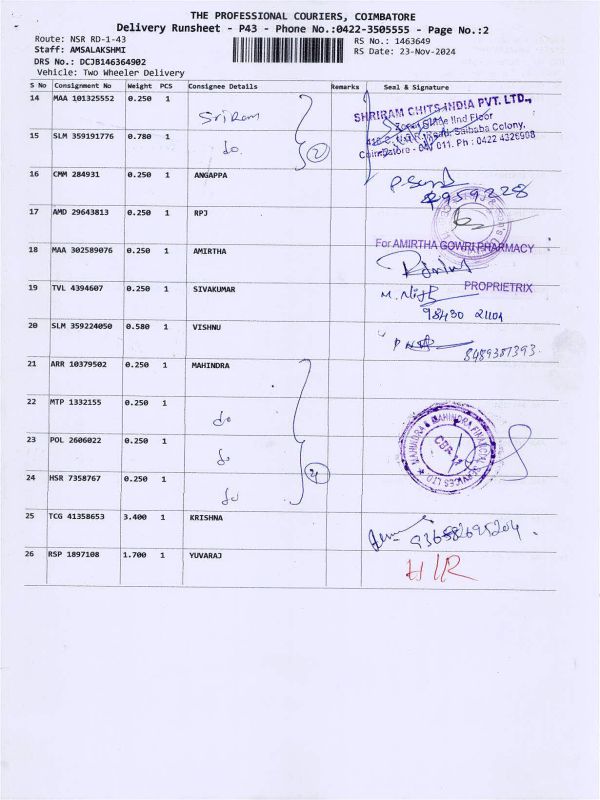 THE PROFESSIONAL COURIERS, COIMBATORE
Delivery Runsheet - P43 - Phone No.:0422-3505555 - Page No.:2
Route: NSR RD-1-43 RS No.: 1463649
Staff: AMSALAKSHMI RS Date: 23-Nov-2024
DRS No.: DCJB146364902
Vehicle: Two Wheeler Delivery
S No Consignment No Weight PCS Consignee Details Remarks Seal & Signature
14 MAA 101325552 0.250 1 Sriram
SHRIRAM CHITS INDIA PVT. LTD.,
IInd Floor
Saibaba Colony,
Coimbatore - 641 011. Ph : 0422 4326908
15 SLM 359191776 0.780 1 do. 2
16 CMM 284931 0.250 1 ANGAPPA
17 AMD 29643813 0.250 1 RPJ
18 MAA 302589076 0.250 1 AMIRTHA
For AMIRTHA GOWRI PHARMACY
PROPRIETRIX
19 TVL 4394607 0.250 1 SIVAKUMAR
98430 21101
20 SLM 359224050 0.580 1 VISHNU
8489387393.
21 ARR 10379502 0.250 1 MAHINDRA
22 MTP 1332155 0.250 1 do
MAHINDRA & MAHINDRA FINANCIAL SERVICES LTD
23 POL 2606022 0.250 1 do
24 HSR 7358767 0.250 1 do 4
25 TCG 41358653 3.400 1 KRISHNA
26 RSP 1897108 1.700 1 YUVARAJ